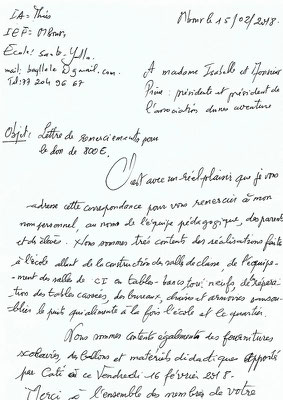 IA = Thiès
IEF = Mbour
Mbour le 15/02/2018.
Ecole: Santo-Yalla.
mail: bayllale@gmail.com.
Tel: 77 204 96 67
A madame Isabelle et Monsieur
présidente et président de
l'association dunes aventure
Objet: Lettre de remerciements pour
le don de 800€.
C'est avec un réel plaisir que je vous
adresse cette correspondance pour vous remercier à mon
nom personnel, au noms de l'équipe pédagogique, des parents
et des élèves. Nous sommes très contents des réalisations faites
à l'école allant de la construction des salles de classe, de l'équipe-
ment des salles de CI en tables-bancs tout neufs, de répara-
tion des tables cassées, des bureaux, chaises et armoires sans ou-
blier le puits qui alimente à la fois l'école et le quartier.
Nous sommes contents également des fournitures
scolaires, des ballons et matériels didactique apporté
par Caté ce Vendredi 16 février 2018.
Merci à l'ensemble des membres de votre